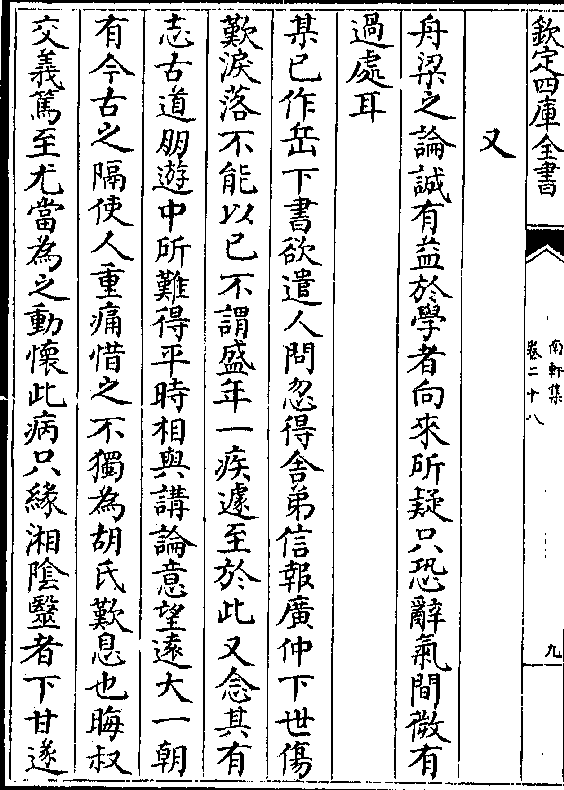 欽定四庫全書
南軒集
卷二十八
九
又
舟梁之論誠有益於學者向來所疑只恐辭氣間微有
過處耳
某已作岳下書欲遣人問忽得舎弟信報廣仲下世傷
歎淚落不能以已不謂盛年一疾遽至於此又念其有
志古道朋遊中所難得平時相與講論意望逺大一朝
有今古之隔使人重痛惜之不獨為胡氏歎息也晦叔
交義篤至尤當為之動懷此病只緣湘隂毉者下甘遂